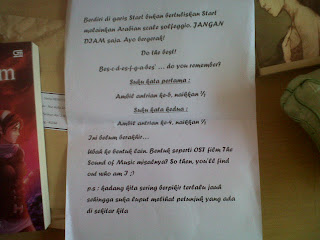 Berdiri di garis Start bukan bertuliskan Start
melainkan Arabian scale solfeggio. JANGAN
DIAM saja. Ayo bergerak!
Do the best!
Bes-c-d-es-f-g-a-bes' ... do you remember?
Suku kata pertama :
Ambil antrian ke-6, naikkan ½
Suku kata kedua :
Ambil antrian ke-4, naikkan ½
Ini belum berakhir...
Ubah ke bentuk lain. Bentuk seperti OST film The
Sound of Music misalnya! So then, you'll find
out who am I ;)
p.s : kadang kita sering berpikir terlalu jauh
sehingga suka luput melihat petunjuk yang ada
di sekitar kita